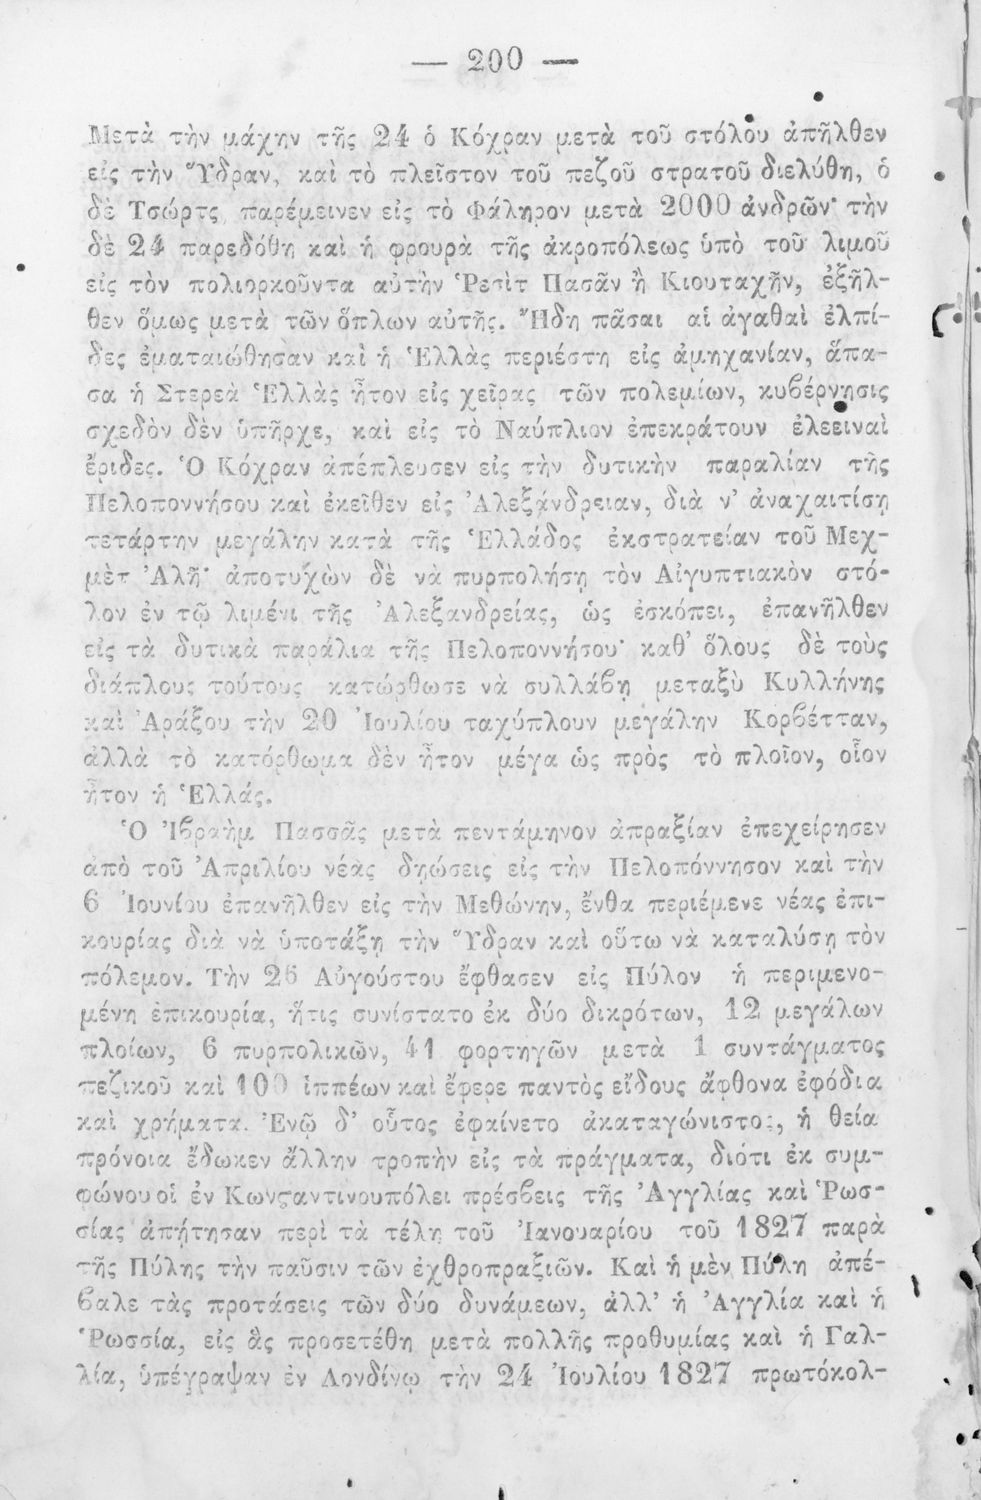 — 200 —
Μετὰ τὴν μάχην τῆς 24 ὁ Κόχραν μετὰ τοῦ στόλου ἀπῆλθεν
εἰς τὴν Ὕδραν, καὶ τὸ πλεῖστον τοῦ πεζοῦ στρατοῦ διελύθη, ὁ
δὲ Τσώρτς παρέμεινεν εἰς τὸ Φάληρον μετὰ 2000 ἀνδρῶν· τὴν
δὲ 24 παρεδόθη καὶ ἡ φρουρὰ τῆς ἀκροπόλεως ὑπὸ τοῦ λιμοῦ
εἰς τὸν πολιορκοῦντα αὐτὴν Ῥεσὶτ Πασᾶν ἢ Κιουταχῆν, ἐξῆλ-
θεν ὅμως μετὰ τῶν ὅπλων αὐτῆς. Ἤδη πᾶσαι αἱ ἀγαθαὶ ἐλπί-
δες ἐματαιώθησαν καὶ ἡ Ἑλλὰς περιέστη εἰς ἀμηχανίαν, ἅπα-
σα ἡ Στερεὰ Ἑλλὰς ἦτον εἰς χεῖρας τῶν πολεμίων, κυβέρνησις
σχεδὸν δὲν ὑπῆρχε, καὶ εἰς τὸ Ναύπλιον ἐπεκράτουν ἐλεειναὶ
ἔριδες. Ὁ Κόχραν ἀπέπλευσεν εἰς τὴν δυτικὴν παραλίαν τῆς
Πελοποννήσου καὶ ἐκεῖθεν εἰς Ἀλεξάνδρειαν, διὰ ν' ἀναχαιτίσῃ
τετάρτην μεγάλην κατὰ τῆς Ἑλλάδος ἐκστρατείαν τοῦ Μεχ-
μὲτ Ἀλῆ· ἀποτυχὼν δὲ νὰ πυρπολήσῃ τὸν Αἰγυπτιακὸν στό-
λον ἐν τῷ λιμένι τῆς Ἀλεξανδρείας, ὡς ἐσκόπει, ἐπανῆλθεν
εἰς τὰ δυτικὰ παράλια τῆς Πελοποννήσου· καθ' ὅλους δὲ τοὺς
διάπλους τούτους κατώρθωσε νὰ συλλάβῃ μεταξὺ Κυλλήνης
καὶ Ἀράξου τὴν 20 Ἰουλίου ταχύπλουν μεγάλην Κορβέτταν,
ἀλλὰ τὸ κατόρθωμα δὲν ἦτον μέγα ὡς πρὸς τὸ πλοῖον, οἷον
ἦτον ἡ Ἑλλάς.
Ὁ Ἰβραὴμ Πασσᾶς μετὰ πεντάμηνον ἀπραξίαν ἐπεχείρησεν
ἀπὸ τοῦ Ἀπριλίου νέας δῃώσεις εἰς τὴν Πελοπόννησον καὶ τὴν
6 Ἰουνίου ἐπανῆλθεν εἰς τὴν Μεθώνην, ἔνθα περιέμενε νέας ἐπι-
κουρίας διὰ νὰ ὑποτάξῃ τὴν Ὕδραν καὶ οὕτω νὰ καταλύσῃ τὸν
πόλεμον. Τὴν 26 Αὐγούστου ἔφθασεν εἰς Πύλον ἡ περιμενο-
μένη ἐπικουρία, ἥτις συνίστατο ἐκ δύο δικρότων, 12 μεγάλων
πλοίων, 6 πυρπολικῶν, 41 φορτηγῶν μετὰ 1 συντάγματος
πεζικοῦ καὶ 100 ἱππέων καὶ ἔφερε παντὸς εἴδους ἄφθονα ἐφόδια
καὶ χρήματα. Ἐνῷ δ' οὗτος ἐφαίνετο ἀκαταγώνιστος, ἡ θεία
πρόνοια ἔδωκεν ἄλλην τροπὴν εἰς τὰ πράγματα, διότι ἐκ συμ-
φώνου οἱ ἐν Κωνϛαντινουπόλει πρέσβεις τῆς Ἀγγλίας καὶ Ῥωσ-
σίας ἀπῄτησαν περὶ τὰ τέλη τοῦ Ἰανουαρίου τοῦ 1827 παρὰ
τῆς Πύλης τὴν παῦσιν τῶν ἐχθροπραξιῶν. Καὶ ἡ μὲν Πύλη ἀπέ-
βαλε τὰς προτάσεις τῶν δύο δυνάμεων, ἀλλ' ἡ Ἀγγλία καὶ ἡ
Ῥωσσία, εἰς ἃς προσετέθη μετὰ πολλῆς προθυμίας καὶ ἡ Γαλ-
λία, ὑπέγραψαν ἐν Λονδίνῳ τὴν 24 Ἰουλίου 1827 πρωτόκολ-